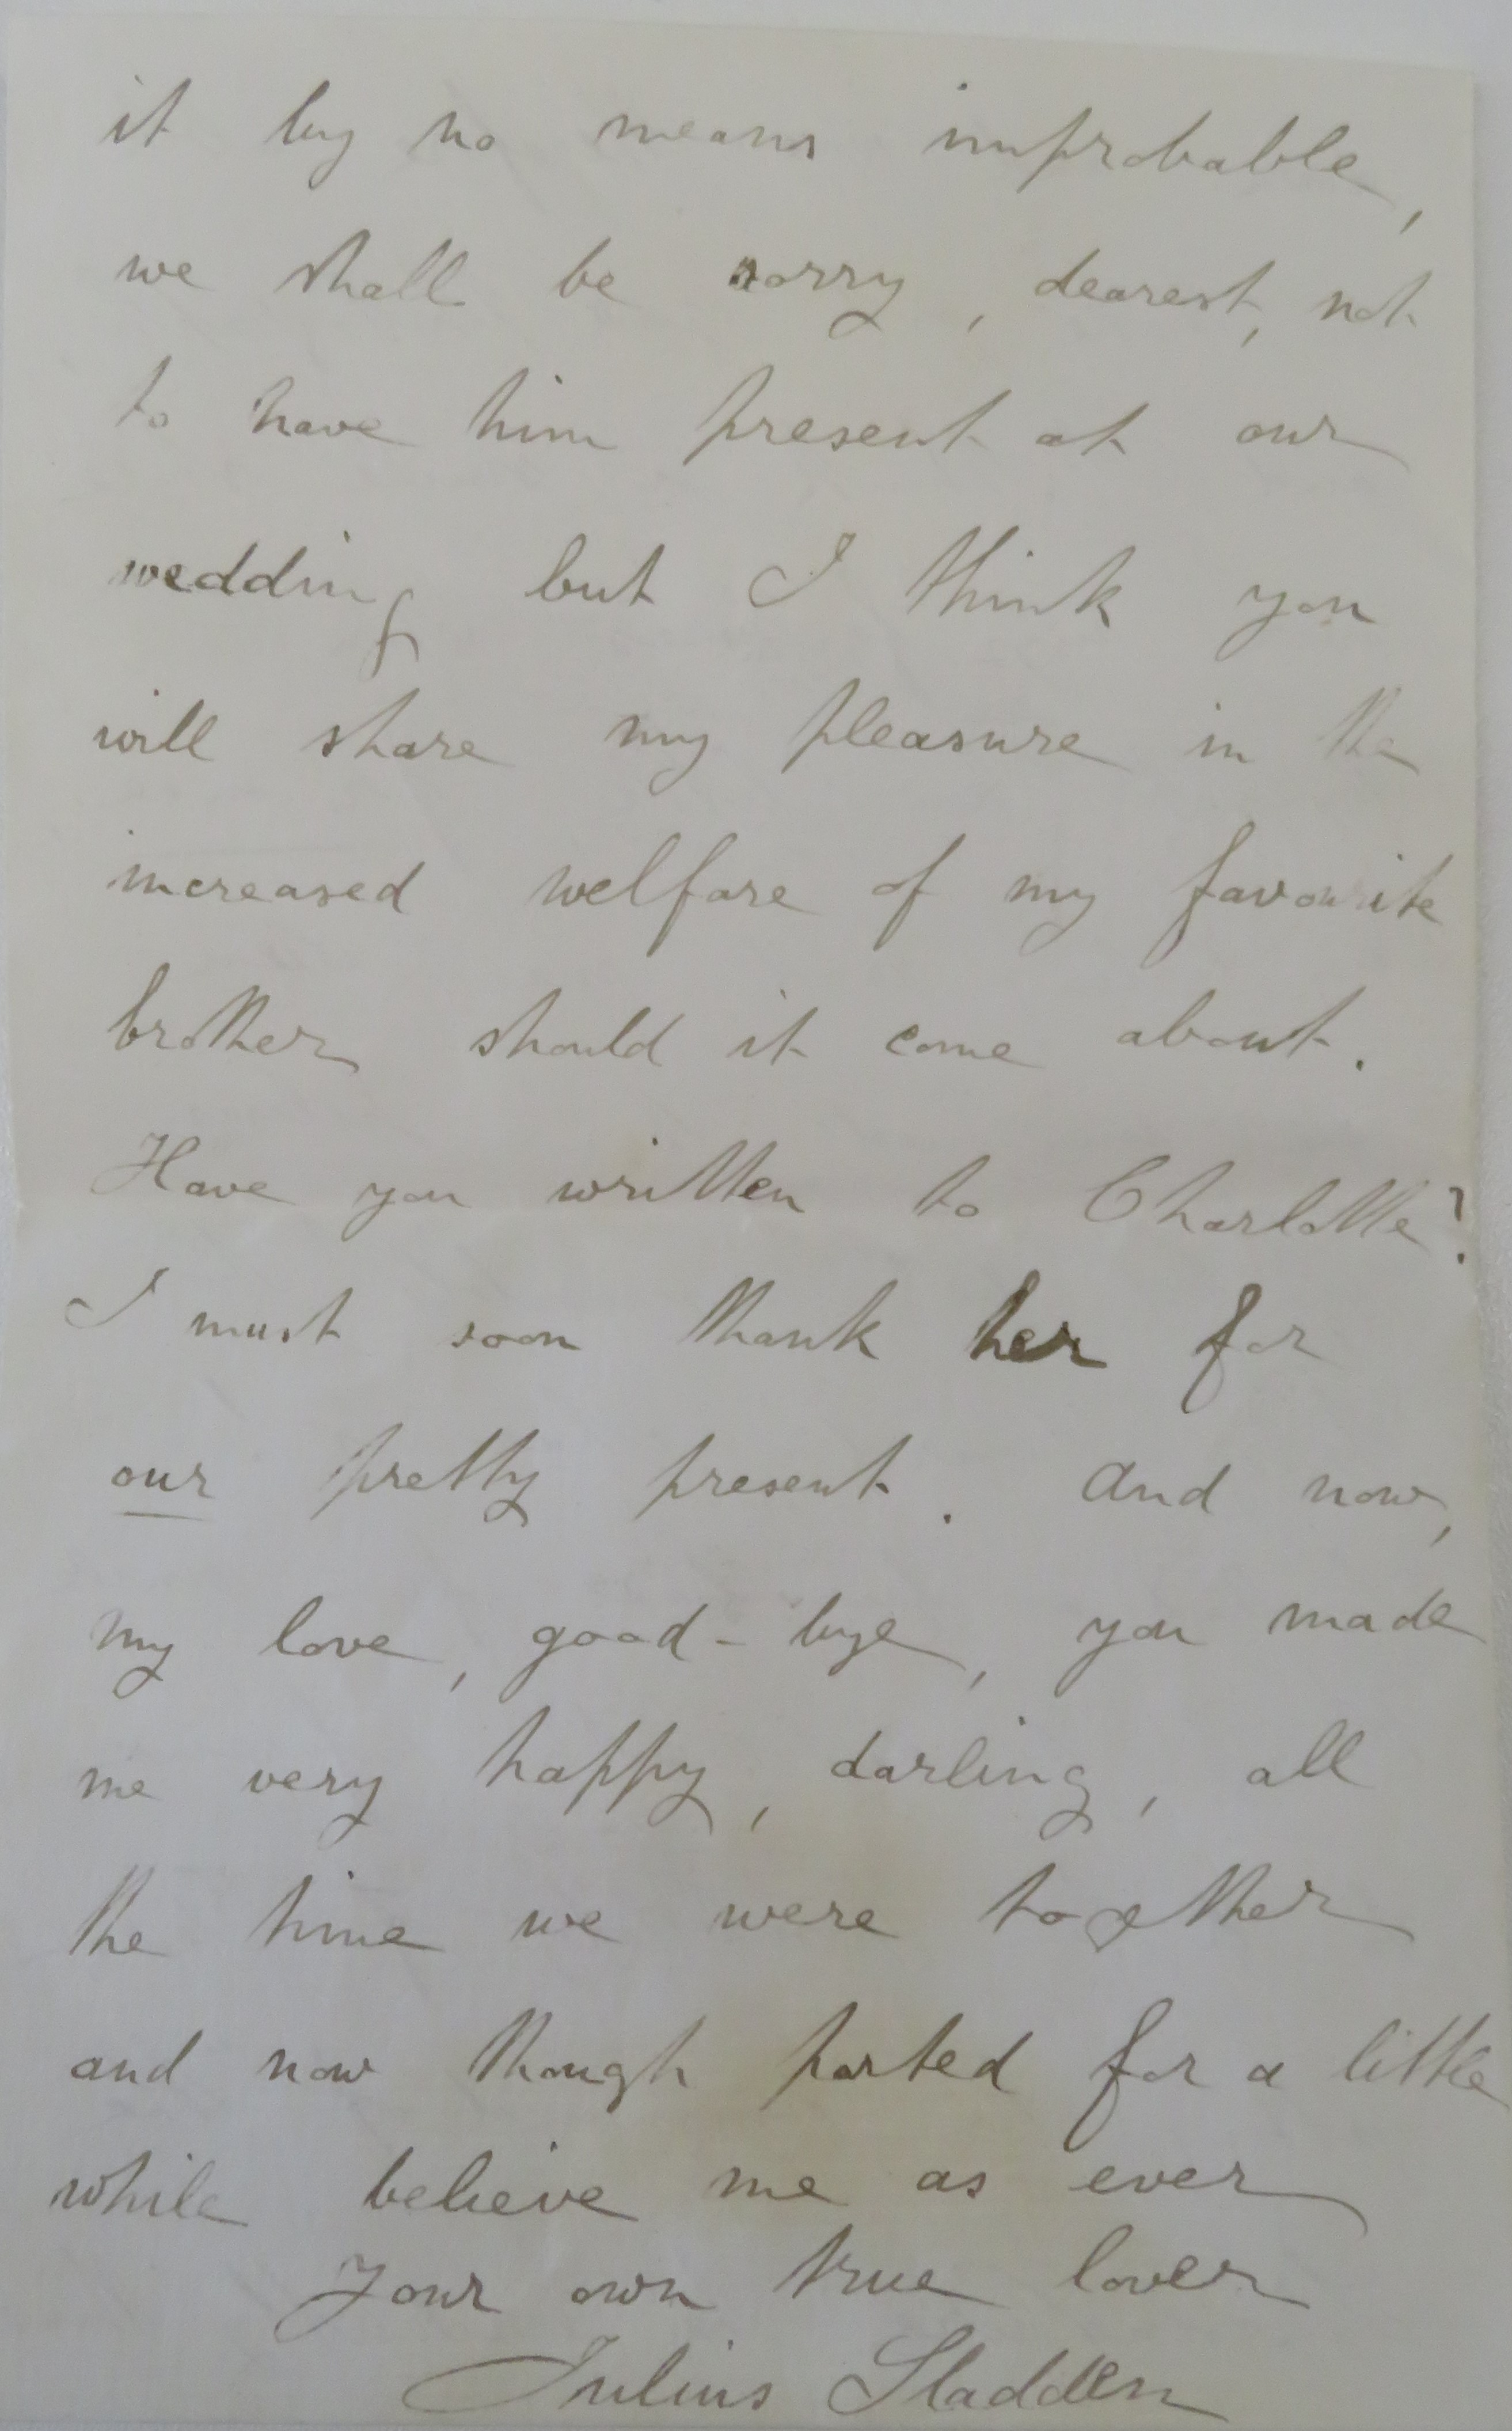 it by no means improbable,
we shall be sorry, dearest, not
to have him present at our
wedding but I think you
will share my pleasure in the
increased welfare of my favourite
brother should it come about.
Have you written to Charlotte?
I must soon thank her for
our pretty present. And now,
my love, good-bye, you made
me very happy, darling, all
the time we were together
and now though parted for a little
while believe me as ever
Your own true lover
Julius Sladden